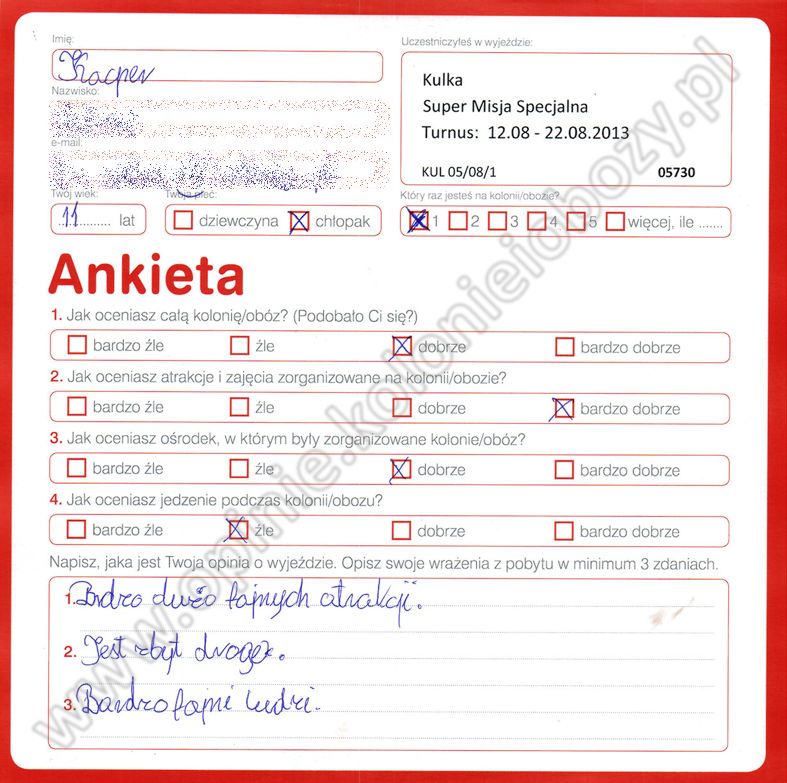 Imię:
Kacper
Nazwisko:
e-mail:
Twój wiek:
11 lat
Twoja płeć:
dziewczyna chłopak
Uczestniczyłeś w wyjeździe:
Kulka
Super Misja Specjalna
Turnus: 12.08 - 22.08.2013
KUL 05/08/1 05730
Który raz jesteś na kolonii/obozie?
1 2 3 4 5 więcej, ile .......
Ankieta
1. Jak oceniasz całą kolonię/obóz? (Podobało Ci się?)
bardzo źle źle dobrze bardzo dobrze
2. Jak oceniasz atrakcje i zajęcia zorganizowane na kolonii/obozie?
bardzo źle źle dobrze bardzo dobrze
3. Jak oceniasz ośrodek, w którym były zorganizowane kolonie/obóz?
bardzo źle źle dobrze bardzo dobrze
4. Jak oceniasz jedzenie podczas kolonii/obozu?
bardzo źle źle dobrze bardzo dobrze
Napisz, jaka jest Twoja opinia o wyjeździe. Opisz swoje wrażenia z pobytu w minimum 3 zdaniach.
1. Brdzo dużo fajnych atrakcji.
2. Jest zbyt drogo.
3. Bardzo fajni ludzi.
www.opinie.kolonieiobozy.pl